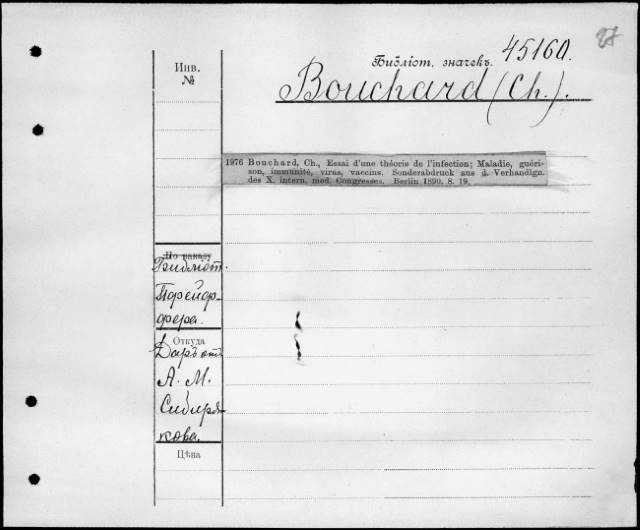 27
Библіот. значекъ. 45160.
Bouchard (Ch.).
Инв.
№
1976 Bouchard, Ch., Essai d'une théorie de l'infection; Maladie, guéri-
son, immunité, virus, vaccins. Sonderabdruck aus d. Verhandlgn.
des X. intern. med. Congresses. Berlin 1890. 8. 19.
По заказу
Библіот.
Пфейф-
фера.
Откуда
Даръ отъ
А. М.
Сибиря-
кова.
Цѣна